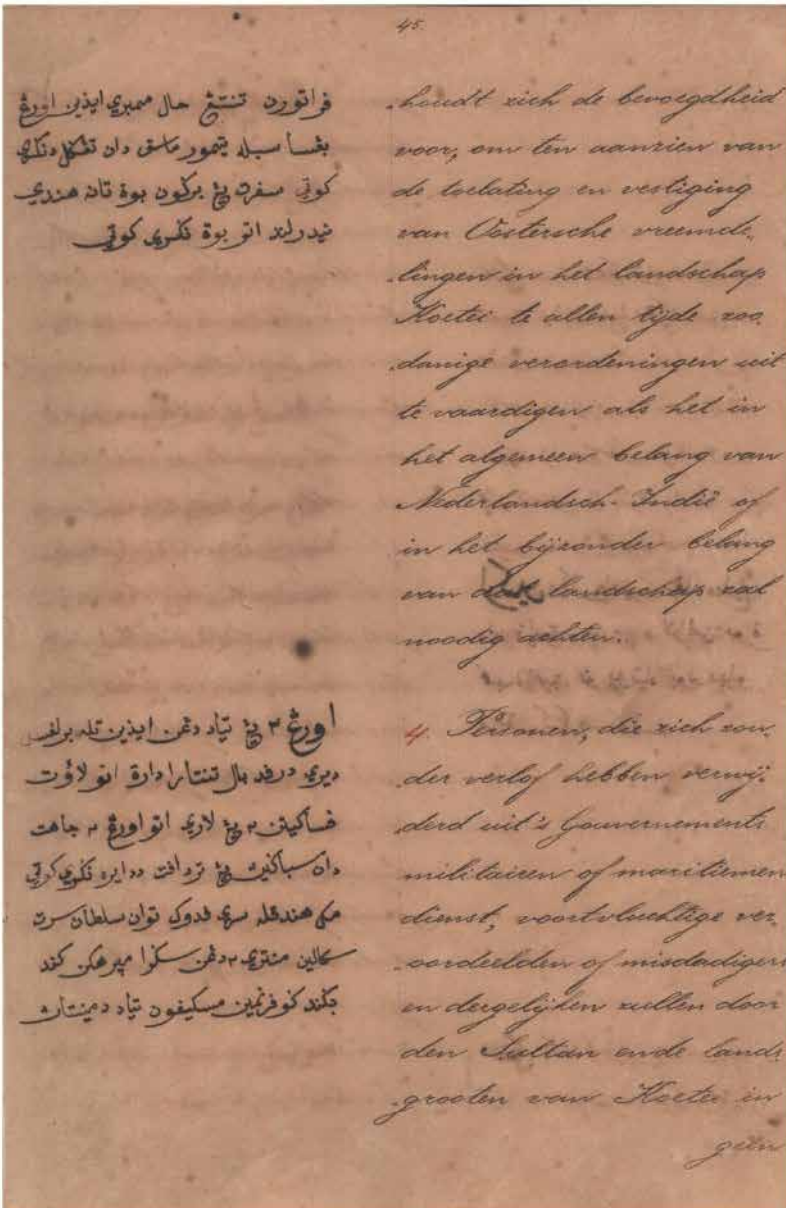 45.
فراتورن تنتڠ حال ممبري ايذين اورڠ
بڠسا سبله تيمور ماسق دان تڠݢل دنݢري
كوتي سفرت يڠ برݢون بوة تانه هندي
نيدرلند اتو بوة نݢري كوتي
اورڠ ٢ يڠ تياد دڠن ايذين تله برلفس
ديري درفد بال تنتارا دارة اتو لاؤت
فساكيتن ٢ يڠ لاري اتو اورڠ ٢ جاهت
دان سباݢيڽ يڠ تردافت ددايره نݢري كوتي
مك هندقله سري فدوك توان سلطان سرت
سكالين منتري ٢ دڠن سݢرا ميرهكن كفد
بݢند ݢوفرنمين مسكيفون تياد دمينتاڽ
.houdt zich de bevoegdheid
voor, om ten aanzien van
de toelating en vestiging
van Oostersche vreemde-
.lingen in het landschap
Koetei te allen tijde zoo-
.danige verordeningen uit
te vaardigen als het in
het algemeen belang van
Nederlandsch-Indië of
in het bijzonder belang
van dat landschap zal
noodig achten.
4. Personen, die zich zon-
.der verlof hebben verwij-
.derd uit 's Gouvernements
militairen of maritiemen
dienst, voortvluchtige ver-
.oordeelden of misdadigers
en dergelijken zullen door
den Sultan en de lands-
.grooten van Koetei in
geen